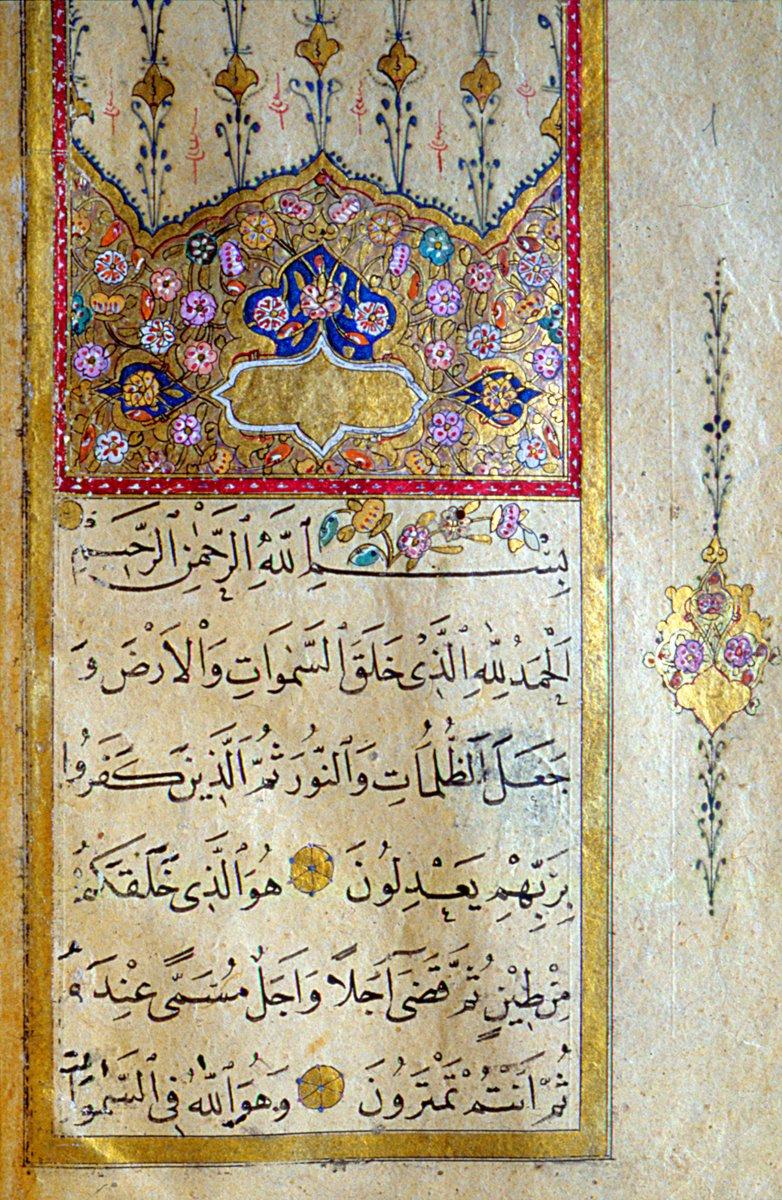 بِسْمِ ٱللّٰهِ ٱلرَّحْمٰنِ ٱلرَّحِيمِ
اَلْحَمْدُ لِلّٰهِ ٱلَّذٖى خَلَقَ ٱلسَّمٰوَاتِ وَالْاَرْضَ وَ
جَعَلَ ٱلظُّلُمَاتِ وَٱلنُّورَ ثُمَّ ٱلَّذٖينَ كَفَرُوا
بِرَبِّهِمْ يَعْدِلُونَ هُوَ ٱلَّذٖى خَلَقَكُمْ
مِنْ طٖينٍ ثُمَّ قَضٰٓى اَجَلًا وَاَجَلٌ مُسَمًّى عِنْدَهُ
ثُمَّ اَنْتُمْ تَمْتَرُونَ وَهُوَ ٱللّٰهُ فِى ٱلسَّمٰوَاتِ